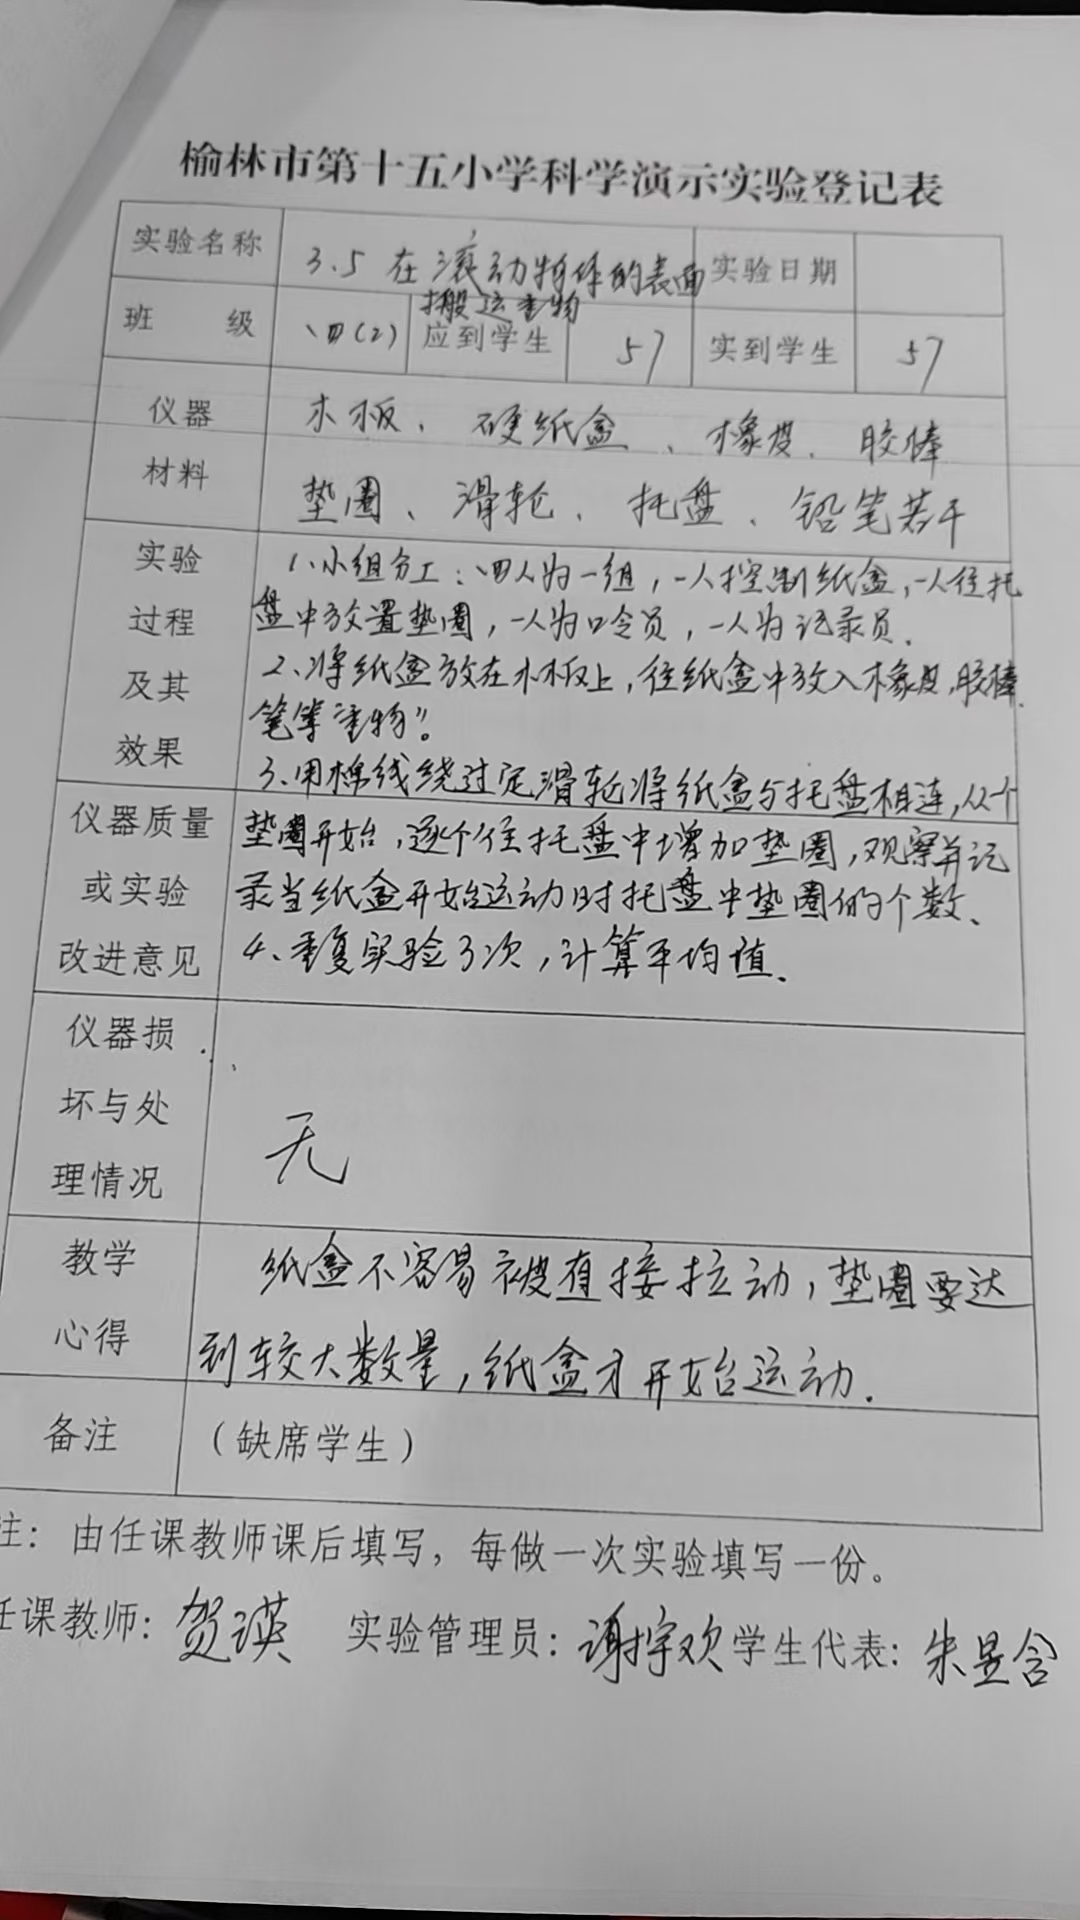 榆林市第十五小学科学演示实验登记表
实验名称 3.5 在滚动物体的表面搬运重物 实验日期
班 级 四(2) 应到学生 57 实到学生 57
仪器 木板、硬纸盒、橡皮、胶棒
材料 垫圈、滑轮、托盘、铅笔若干
实验过程及其效果
1、小组分工:四人为一组,一人控制纸盒,一人往托
盘中放置垫圈,一人为口令员,一人为记录员.
2、将纸盒放在木板上,往纸盒中放入橡皮,胶棒.
笔等重物".
3、用棉线绕过定滑轮将纸盒与托盘相连,从一个
仪器质量或实验改进意见
垫圈开始,逐个往托盘中增加垫圈,观察并记
录当纸盒开始运动时托盘中垫圈的个数、
4、重复实验3次,计算平均值.
仪器损坏与处理情况
无
教学心得
纸盒不容易被直接拉动,垫圈要达
到较大数量,纸盒才开始运动.
备注 (缺席学生)
注:由任课教师课后填写,每做一次实验填写一份。
任课教师:贺瑛 实验管理员:谢宇欢 学生代表:朱昱含